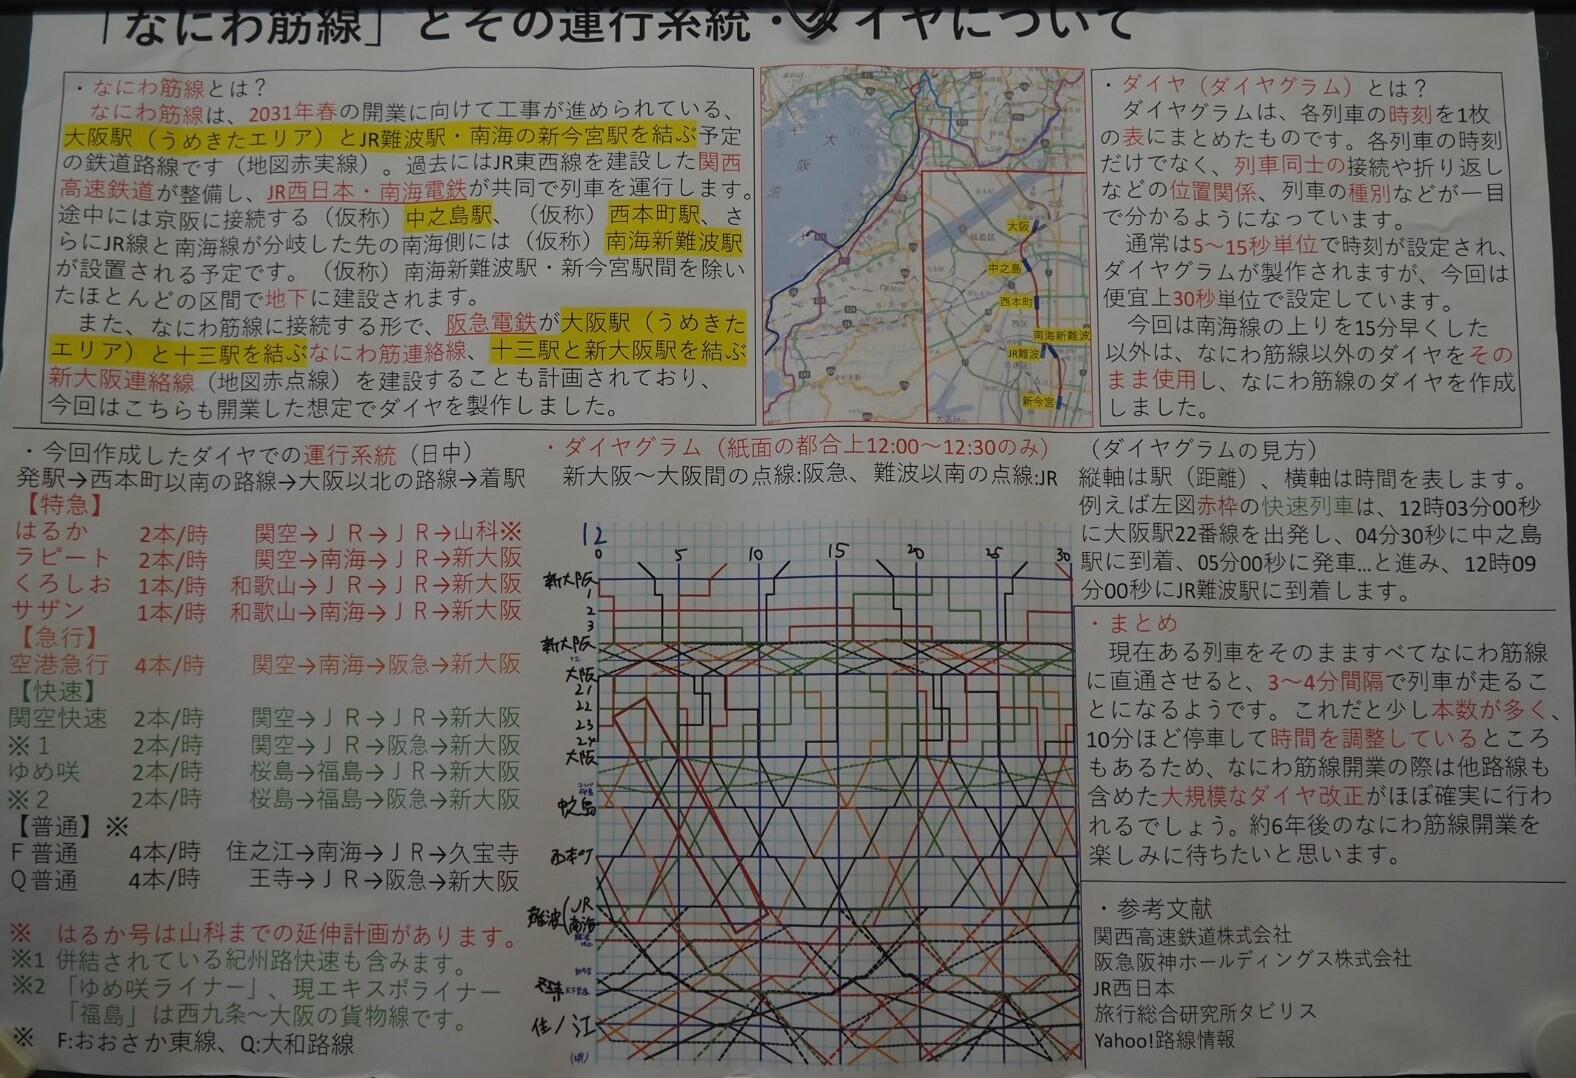 「なにわ筋線」とその運行系統・ダイヤについて
・なにわ筋線とは？
なにわ筋線は、2031年春の開業に向けて工事が進められている、
大阪駅（うめきたエリア）とJR難波駅・南海の新今宮駅を結ぶ予定
の鉄道路線です（地図赤実線）。過去にはJR東西線を建設した関西
高速鉄道が整備し、JR西日本・南海電鉄が共同で列車を運行します。
途中には京阪に接続する（仮称）中之島駅、（仮称）西本町駅、さ
らにJR線と南海線が分岐した先の南海側には（仮称）南海新難波駅
が設置される予定です。（仮称）南海新難波駅・新今宮駅間を除い
たほとんどの区間で地下に建設されます。
また、なにわ筋線に接続する形で、阪急電鉄が大阪駅（うめきた
エリア）と十三駅を結ぶなにわ筋連絡線、十三駅と新大阪駅を結ぶ
新大阪連絡線（地図赤点線）を建設することも計画されており、
今回はこちらも開業した想定でダイヤを製作しました。
大阪
中之島
西本町
南海新難波
JR難波
新今宮
・ダイヤ（ダイヤグラム）とは？
ダイヤグラムは、各列車の時刻を1枚
の表にまとめたものです。各列車の時刻
だけでなく、列車同士の接続や折り返し
などの位置関係、列車の種別などが一目
で分かるようになっています。
通常は5～15秒単位で時刻が設定され、
ダイヤグラムが製作されますが、今回は
便宜上30秒単位で設定しています。
今回は南海線の上りを15分早くした
以外は、なにわ筋線以外のダイヤをその
まま使用し、なにわ筋線のダイヤを作成
しました。
・今回作成したダイヤでの運行系統（日中）
発駅→西本町以南の路線→大阪以北の路線→着駅
【特急】
はるか 2本/時 関空→ＪＲ→ＪＲ→山科※
ラピート 2本/時 関空→南海→ＪＲ→新大阪
くろしお 1本/時 和歌山→ＪＲ→ＪＲ→新大阪
サザン 1本/時 和歌山→南海→ＪＲ→新大阪
【急行】
空港急行 4本/時 関空→南海→阪急→新大阪
【快速】
関空快速 2本/時 関空→ＪＲ→ＪＲ→新大阪
※１ 2本/時 関空→ＪＲ→阪急→新大阪
ゆめ咲 2本/時 桜島→福島→ＪＲ→新大阪
※２ 2本/時 桜島→福島→阪急→新大阪
【普通】※
Ｆ普通 4本/時 住之江→南海→ＪＲ→久宝寺
Ｑ普通 4本/時 王寺→ＪＲ→阪急→新大阪
※ はるか号は山科までの延伸計画があります。
※1 併結されている紀州路快速も含みます。
※2 「ゆめ咲ライナー」、現エキスポライナー
「福島」は西九条～大阪の貨物線です。
※ F:おおさか東線、Q:大和路線
・ダイヤグラム（紙面の都合上12:00～12:30のみ）
新大阪～大阪間の点線:阪急、難波以南の点線:JR
12
0 5 10 15 20 25 30
新大阪
1
2
3
新大阪
大阪
21
22
23
24
大阪
中之島
西本町
難波(JR
南海
住ノ江
（ダイヤグラムの見方）
縦軸は駅（距離）、横軸は時間を表します。
例えば左図赤枠の快速列車は、12時03分00秒
に大阪駅22番線を出発し、04分30秒に中之島
駅に到着、05分00秒に発車…と進み、12時09
分00秒にJR難波駅に到着します。
・まとめ
現在ある列車をそのまますべてなにわ筋線
に直通させると、3～4分間隔で列車が走るこ
とになるようです。これだと少し本数が多く、
10分ほど停車して時間を調整しているところ
もあるため、なにわ筋線開業の際は他路線も
含めた大規模なダイヤ改正がほぼ確実に行わ
れるでしょう。約6年後のなにわ筋線開業を
楽しみに待ちたいと思います。
・参考文献
関西高速鉄道株式会社
阪急阪神ホールディングス株式会社
JR西日本
旅行総合研究所タビリス
Yahoo!路線情報